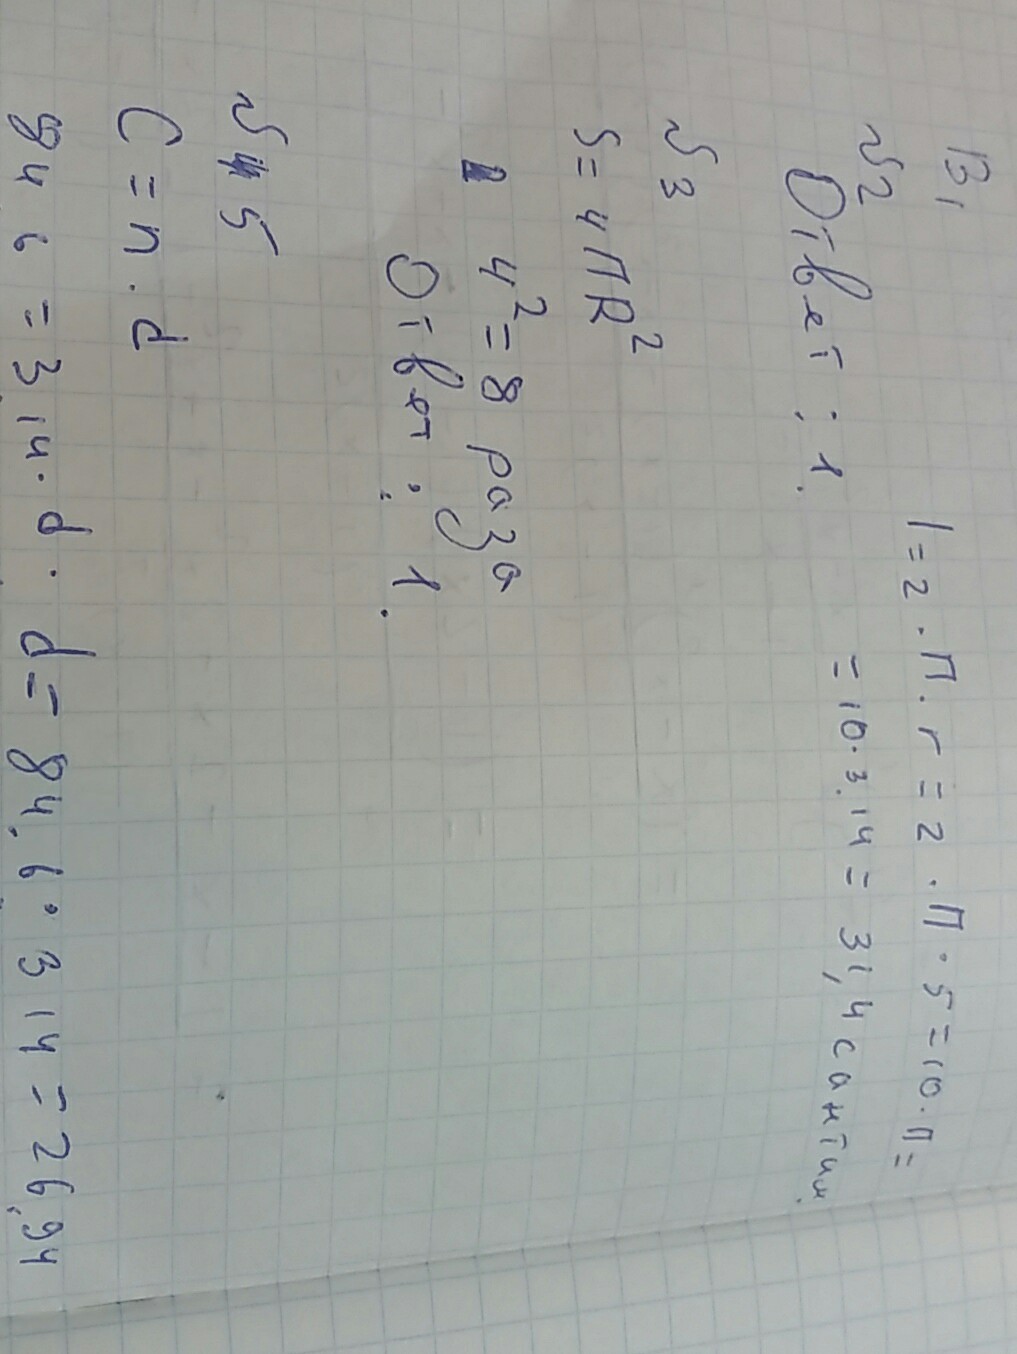 В1
l = 2 · П · r = 2 · П · 5 = 10 · П =
№2
= 10 · 3,14 = 31,4 сантим.
Ответ : 1.
№3
S = 4ПR²
4² = 8 раза
Ответ : 1.
№ 5
C = п · d
84,6 = 3,14 · d · d = 84,6 : 3,14 = 26,94